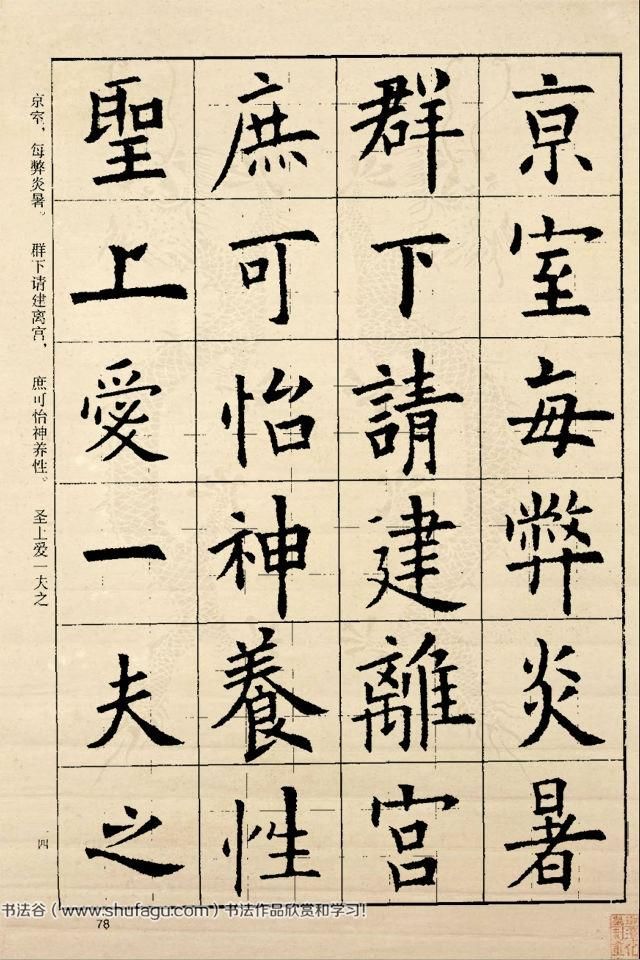 京室每弊炎暑
群下請建離宮
庶可怡神養性
聖上愛一夫之
京室，每弊炎暑。 群下请建离宫， 庶可怡神养性。 圣上爱一夫之
四
书法谷（www.shufagu.com）书法作品欣赏和学习!
78